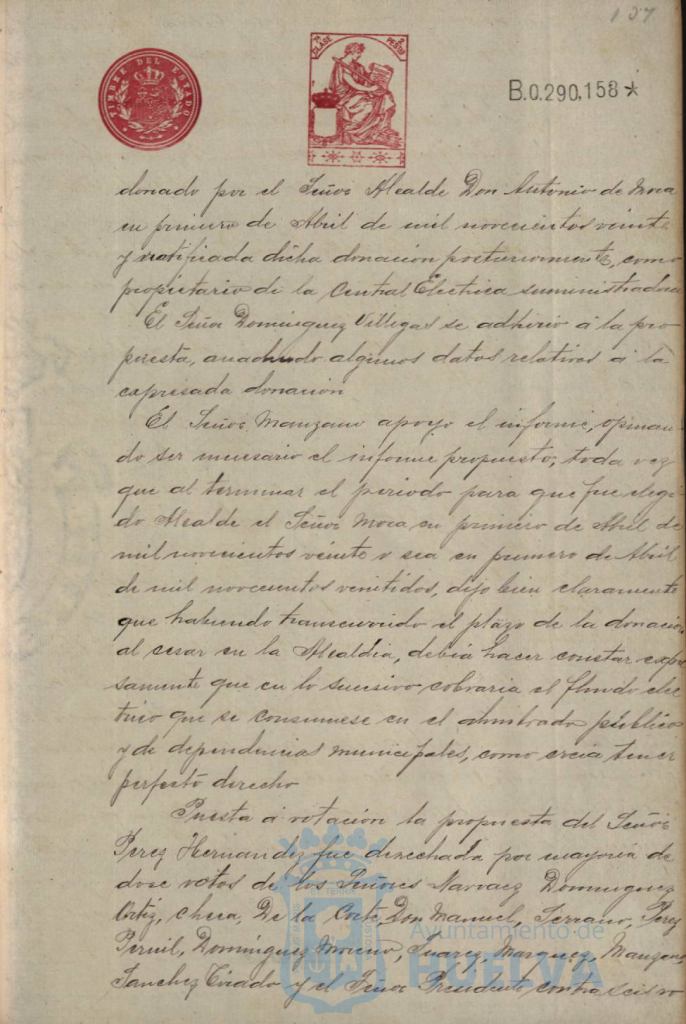 157
TIMBRE DEL ESTADO
7ª CLASE
2 PESETAS
B.0.290,158*
donado por el Señor Alcalde Don Antonio de Mora
en primero de Abril de mil novecientos veinte
y ratificada dicha donación posteriormente, como
propietario de la Central Electrica suministradora
El Señor Dominguez Villegas se adhirio á la pro
puesta, anadiendo algunos datos relativos á la
expresada donación
El Señor Manzano apoyo el informe, opinan-
do ser necesario el informe propuesto, toda vez
que al terminar el periodo para que fue elegi
do Alcalde el Señor Mora en primero de Abril de
mil novecientos veinte o sea en primero de Abril
de mil novecientos veintidos, dijo bien claramente
que habiendo transcurrido el plazo de la donación
al cesar en la Alcaldia, debia hacer constar expre
samente que en lo sucesivo cobraria el fluido elec
trico que se consumiese en el alumbrado público
y de dependencias municipales, como creia tener
perfecto derecho
Puesta á votación la propuesta del Señor
Perez Hernandez fue desechada por mayoria de
doce votos de los Señores Narvaez Dominguez
Ortiz, Checa, De la Corte, Don Manuel, Serrano, Perez
Dominguez Moreno, Suarez, Marquez, Manzano
Sanchez Tirado y el Señor Presidente, contra seis
Ayuntamiento de
HUELVA